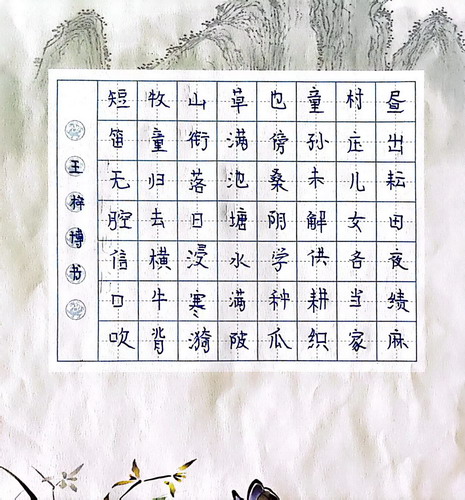 昼出耘田夜绩麻
村庄儿女各当家
童孙未解供耕织
也傍桑阴学种瓜
草满池塘水满陂
山衔落日浸寒漪
牧童归去横牛背
短笛无腔信口吹
王梓博书